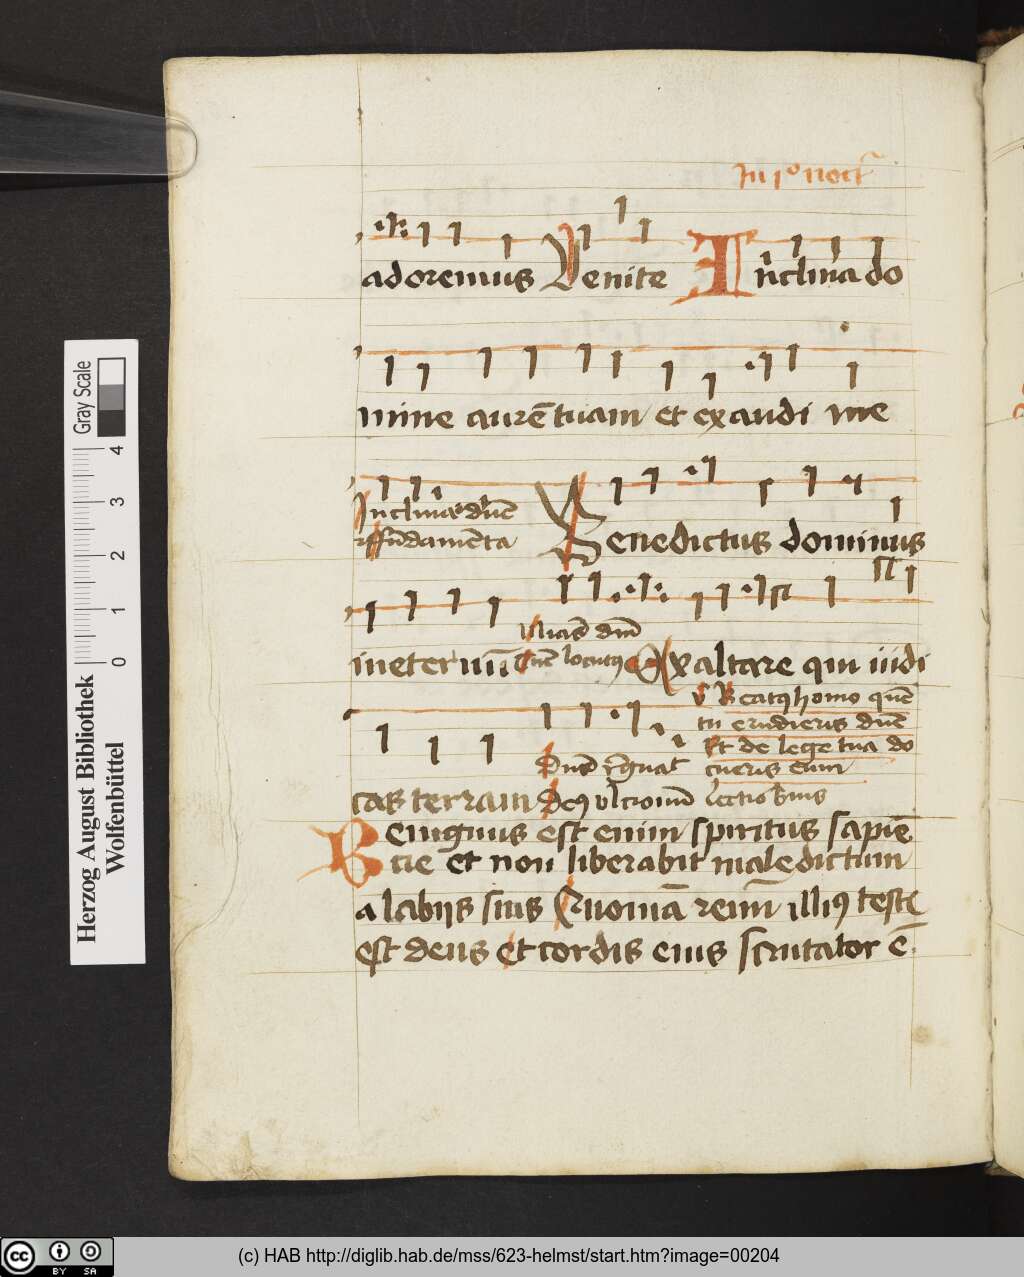 In 1º noct̃
adoremus Venite Inclina do
mine aurē tuam et exaudi me
Inclina dñe
ffūdamēta Benedictus dominus
Miscdm̄
ineternū Exaltare qui iudi
v Beatꝯ homo quē
tu erudieris dñe
Et de lege tua do
cueris eum
cas terram Deꝯ ulcionū Lectio
Benignus est enim spiritus sapiē
cie et non liberabit maledictum
a labijs suis Quoniā renū illiꝯ testis
est deus et cordis eius scrutator ē.
Herzog August Bibliothek
Wolfenbüttel
Gray Scale
0 1 2 3 4
cc BY SA
(c) HAB http://diglib.hab.de/mss/623-helmst/start.htm?image=00204